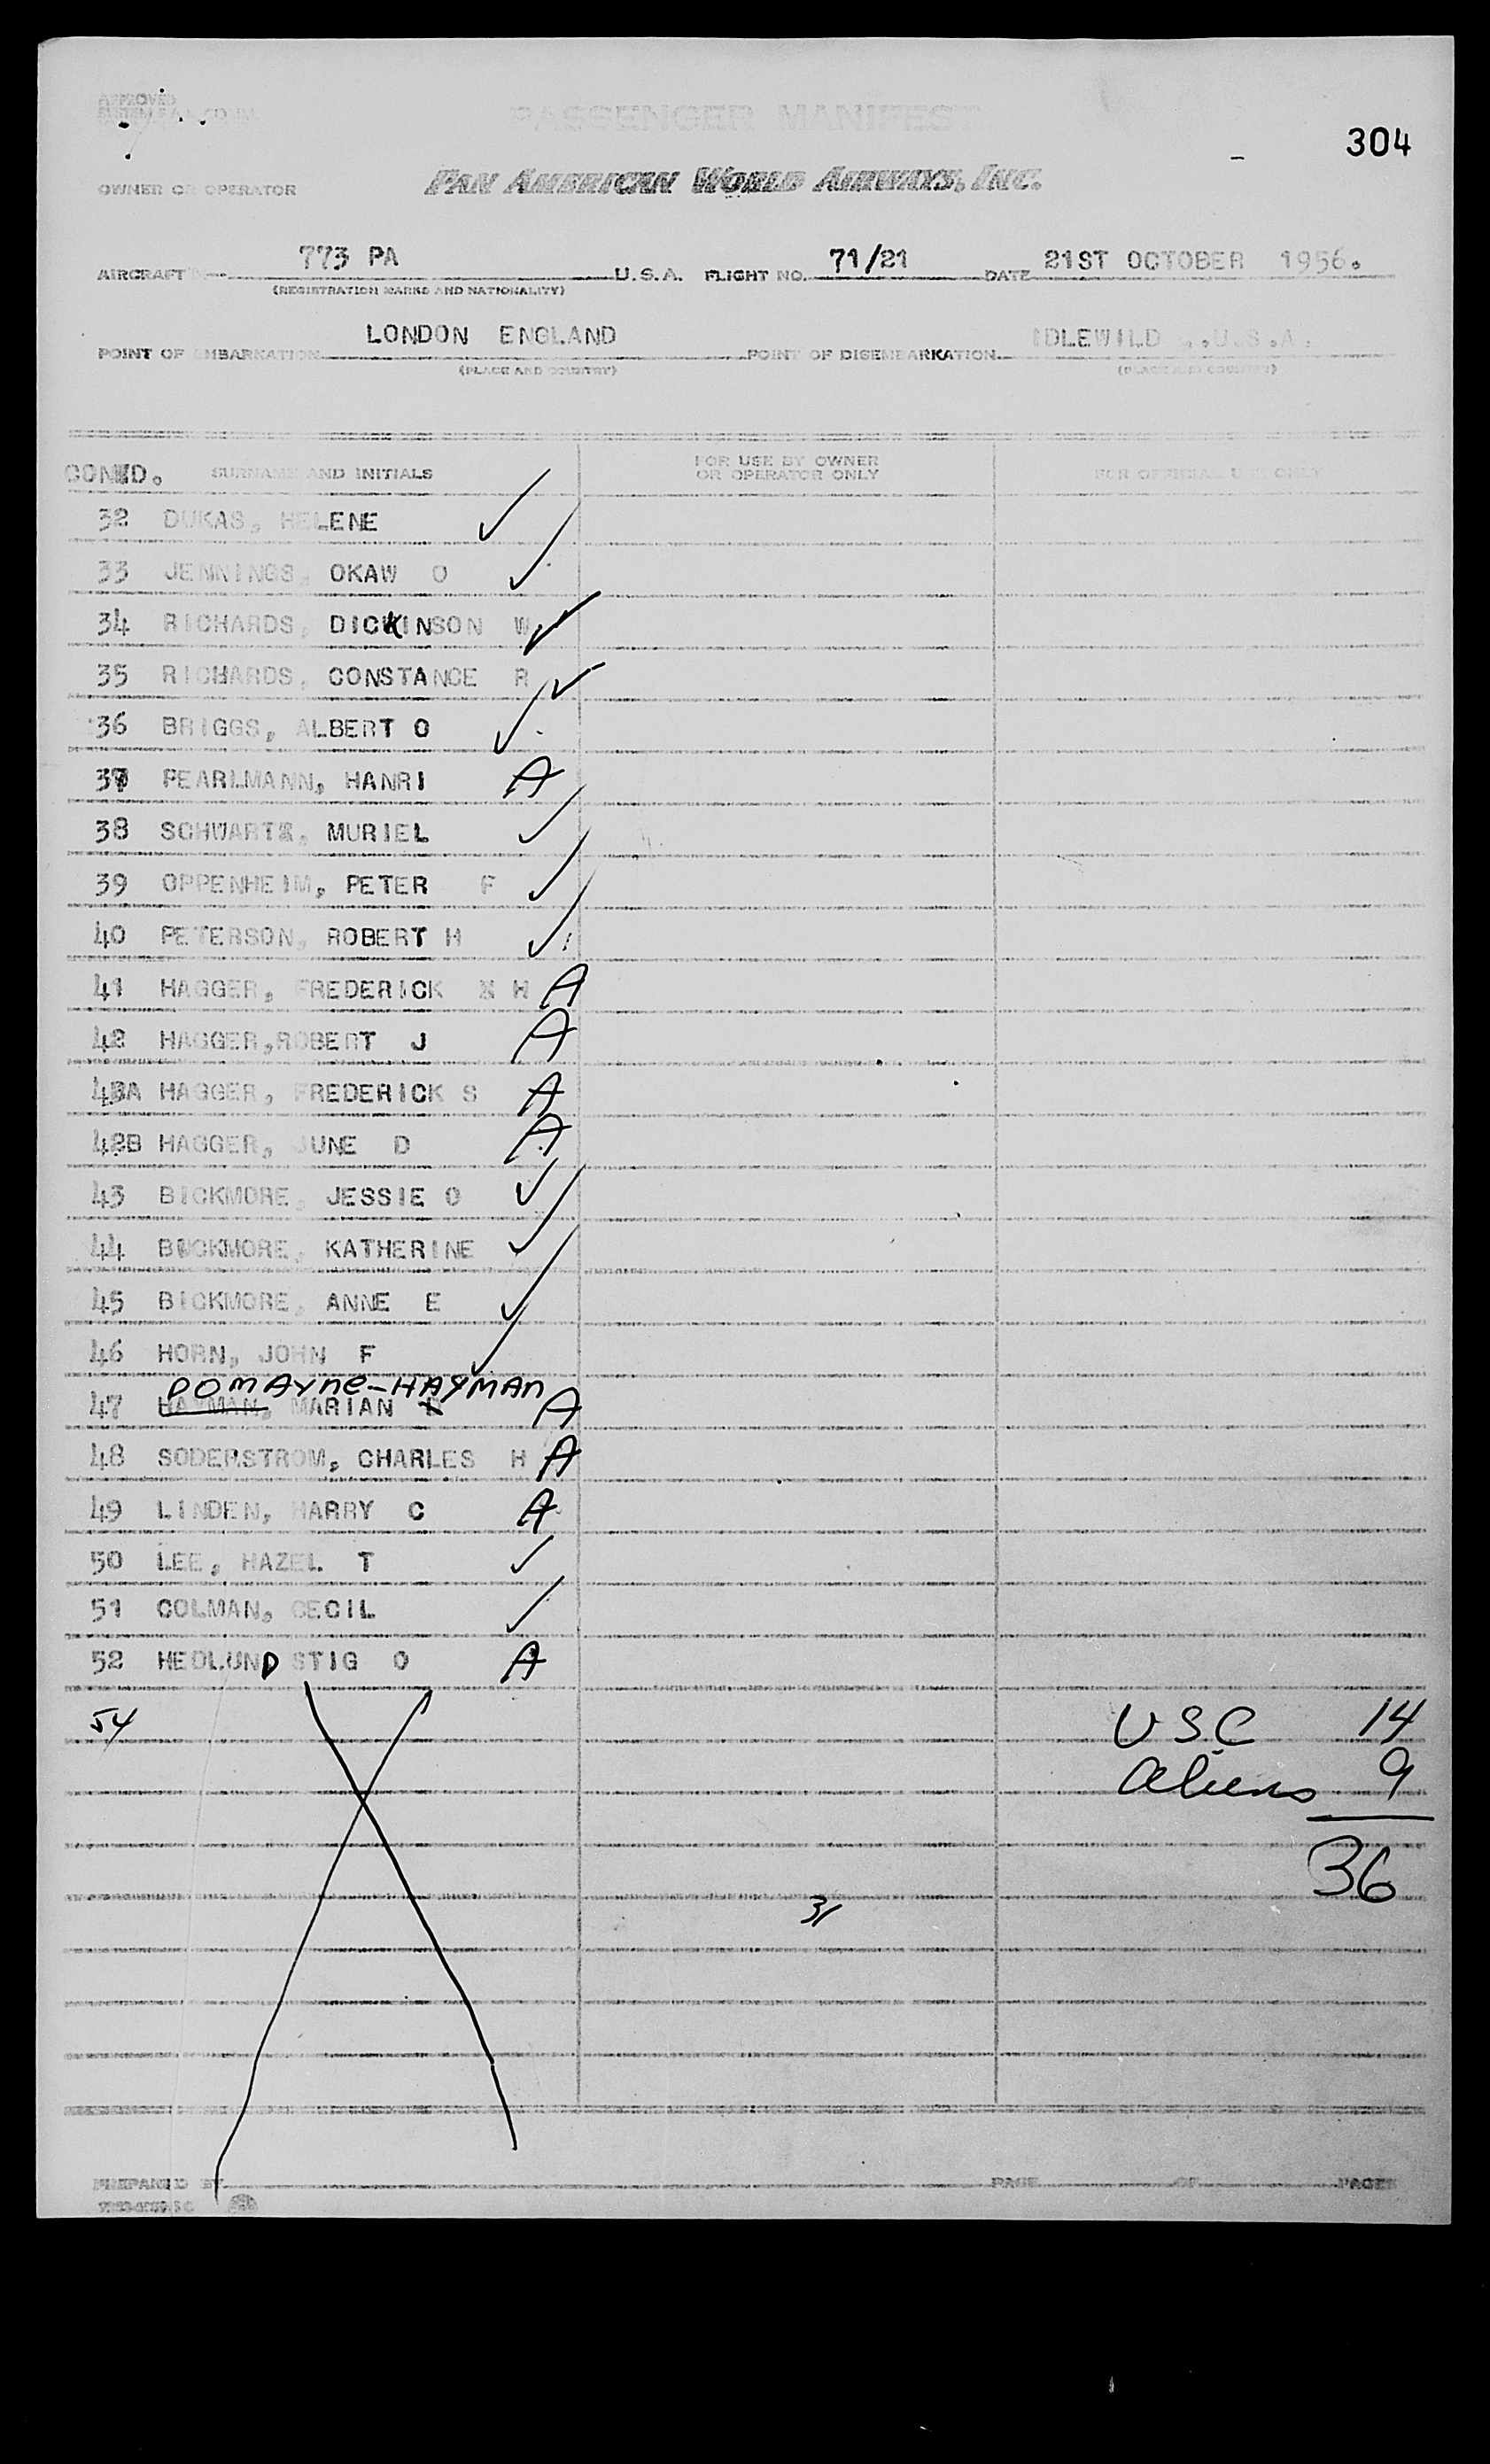 APPROVED
PASSENGER MANIFEST
304
OWNER OR OPERATOR PAN AMERICAN WORLD AIRWAYS, INC.
AIRCRAFT 773 PA U.S.A. FLIGHT NO. 71/21 DATE 21ST OCTOBER 1956.
(REGISTRATION MARKS AND NATIONALITY)
POINT OF EMBARKATION LONDON ENGLAND POINT OF DISEMBARKATION IDLEWILD ,.U.S.A.
(PLACE AND COUNTRY) (PLACE AND COUNTRY)
CONTD. SURNAME AND INITIALS FOR USE BY OWNER OR OPERATOR ONLY FOR OFFICIAL USE ONLY
32 DUKAS, HELENE ✓
33 JENNINGS, OKAW O ✓
34 RICHARDS, DICKINSON W ✓
35 RICHARDS, CONSTANCE R ✓
36 BRIGGS, ALBERT O ✓
37 PEARLMANN, HANRI A
38 SCHWARTZ, MURIEL ✓
39 OPPENHEIM, PETER F ✓
40 PETERSON, ROBERT H ✓
41 HAGGER, FREDERICK H A
42 HAGGER,ROBERT J A
42A HAGGER, FREDERICK S A
42B HAGGER, JUNE D A
43 BICKMORE, JESSIE O ✓
44 BICKMORE, KATHERINE ✓
45 BICKMORE, ANNE E ✓
46 HORN, JOHN F ✓
DOMAYNE-HAYMAN
47 HAYMAN, MARIAN D A
48 SODERSTROM, CHARLES H A
49 LINDEN, HARRY C A
50 LEE, HAZEL T ✓
51 COLMAN, CECIL ✓
52 HEDLUND STIG O A
54 USC 14
Aliens 9
36
31
PREPARED BY PAGE OF PAGES